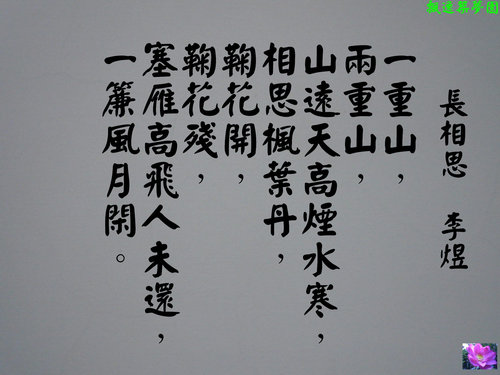 長相思 李煜
一重山，
兩重山，
山遠天高煙水寒，
相思楓葉丹，
鞠花開，
鞠花殘，
塞雁高飛人未還，
一簾風月閑。